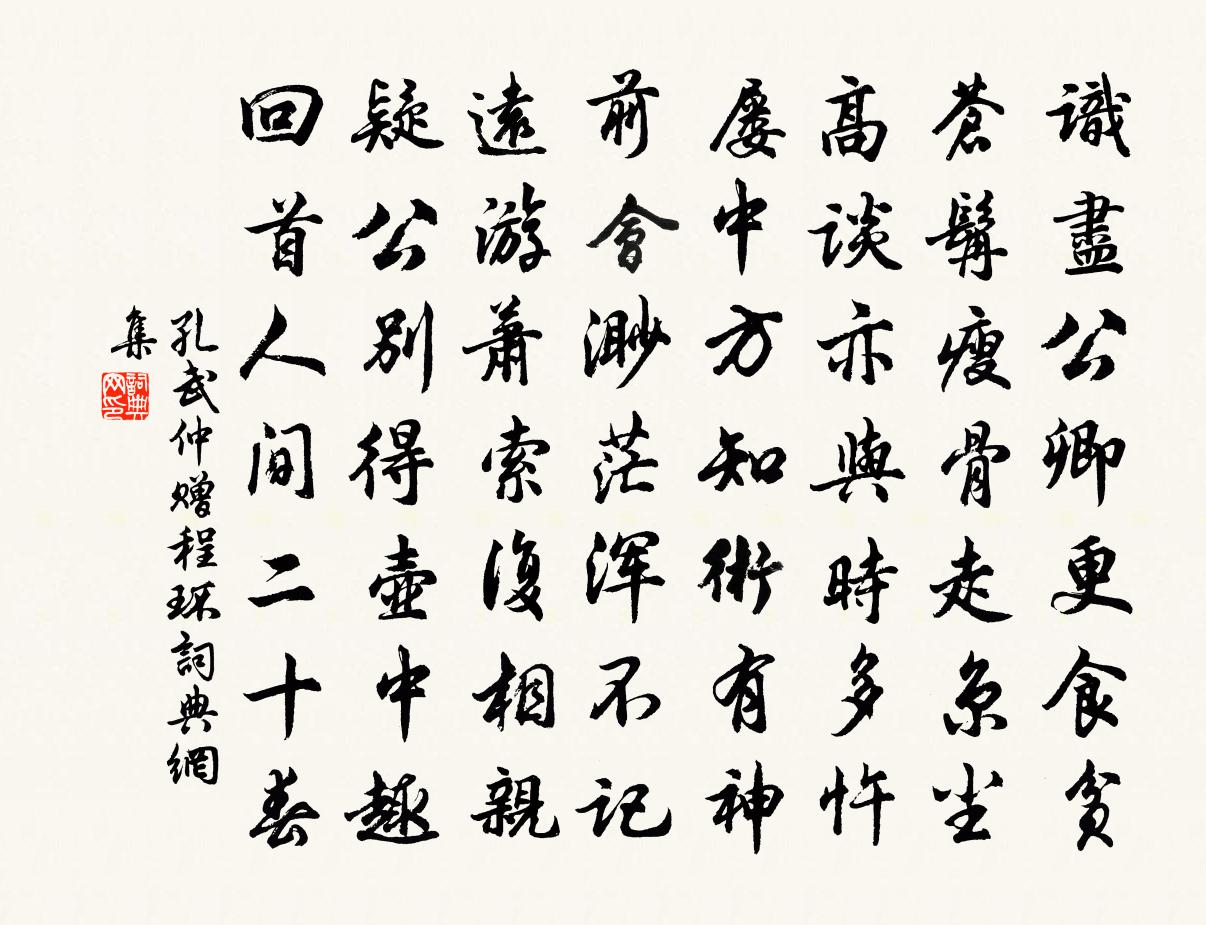 識盡公卿更食貧
蒼髯瘦骨走京尘
高談亦與時多忤
屡中方知術有神
前會渺茫浑不记
遠游蕭索復相親
疑公别得壺中趣
回首人间二十春
孔武仲赠程琛詞典網
集
詞典
网印